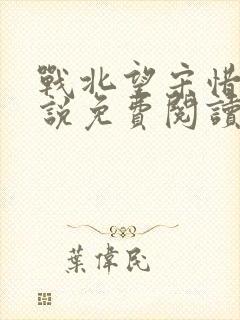 戰北望宋惜
說免費閱讀
葉偉民